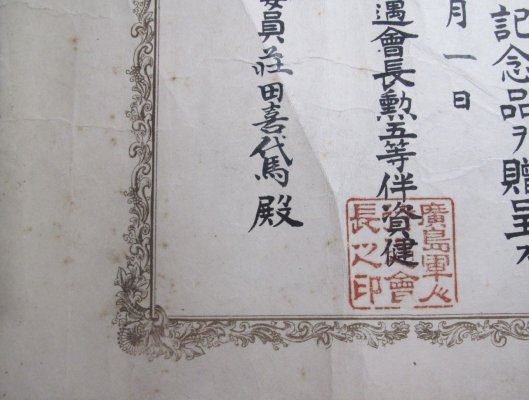 記念品ヲ贈呈
月一日
遇會長勲五等伴資健
委員荘田喜代馬殿
廣島軍人
會
長之印